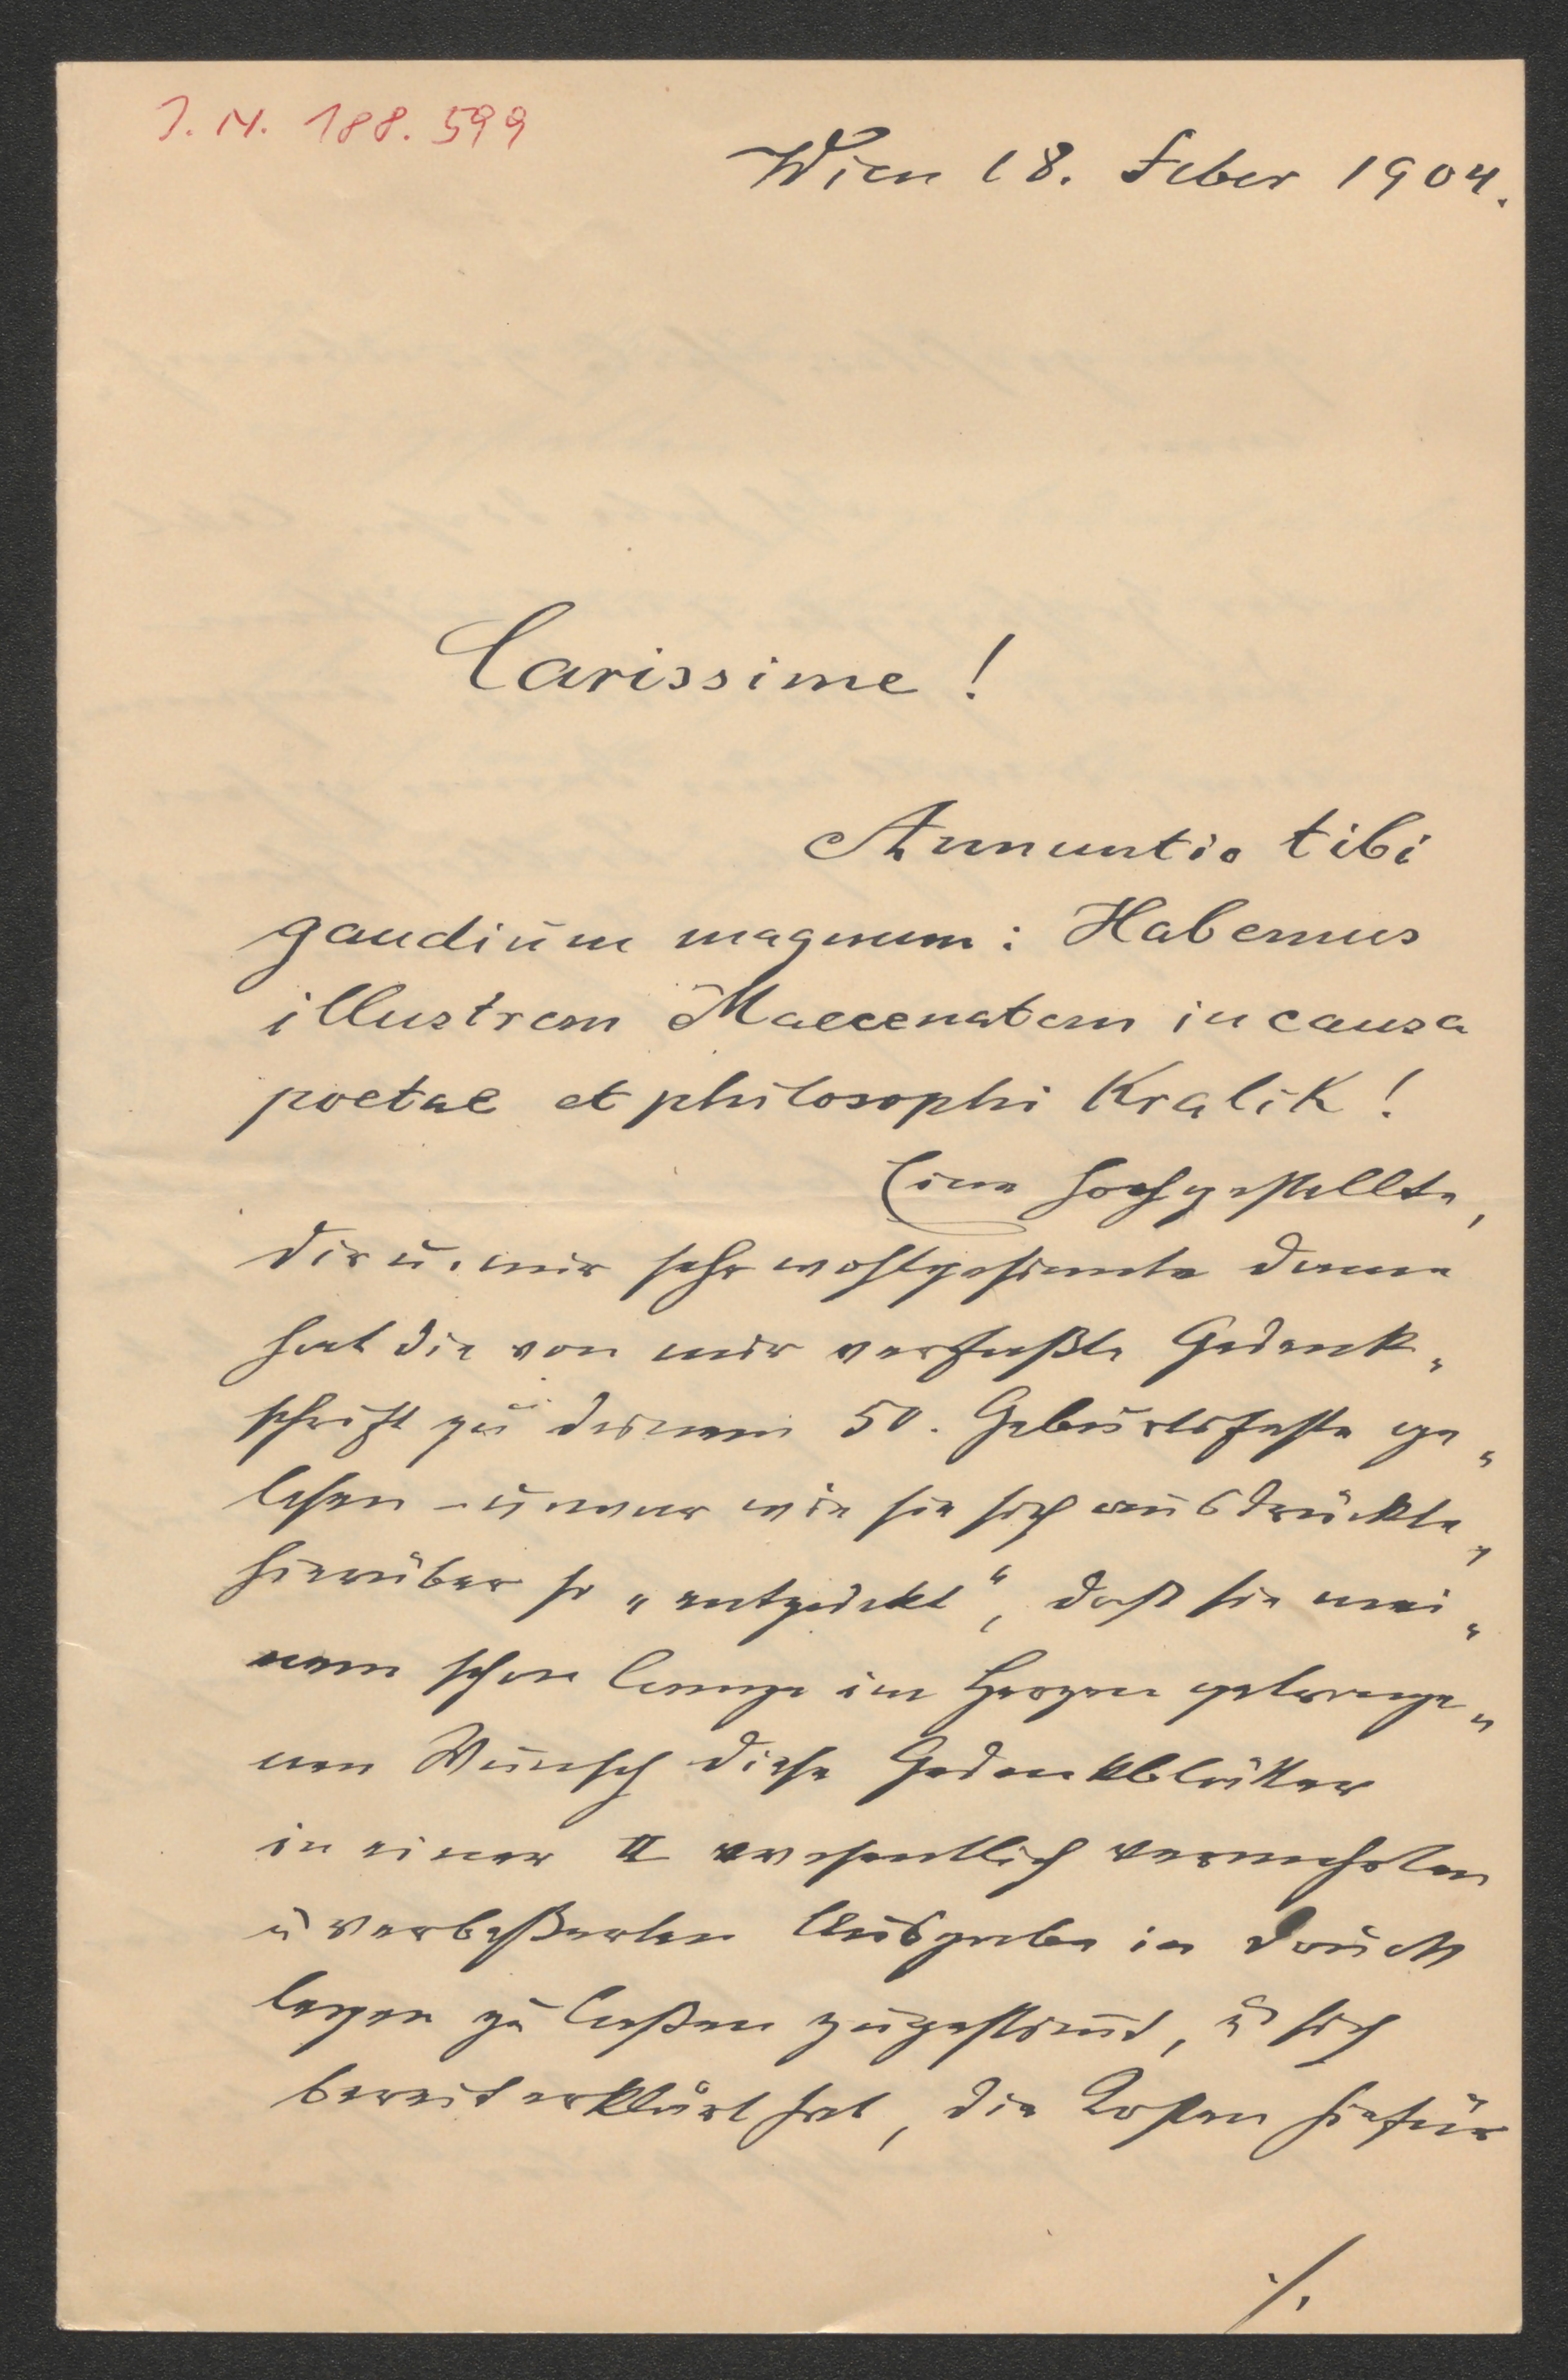 J. N. 188.599
Wien 18. Feber 1904.
Carissime!
Annuntio tibi
gaudium magnum: Habemus
illustrem Maecenatem in causa
poetae et philosophi Kralik!
Eine hochgestellte,
dir u. mir sehr wohlgesinnte Dame
hat die von mir verfaßte Gedenk-
schrift zu deinem 50. Geburtsfeste ge-
lesen – u war wie sie sich ausdrückte,
hierüber so „entzückt“, daß sie mei-
nem schon lange im Herzen getrage-
nen Wunsch diese Gedenkblätter
in einer II wesentlich vermehrten
u verbeßerten Ausgabe in Druck
legen zu laßen zugestimt, u sich
bereit erklärt hat, die Kosten hiefür
./.